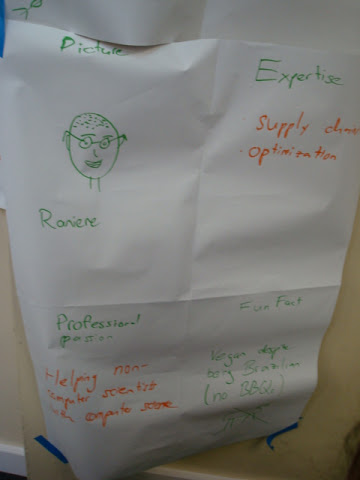 Picture
Expertise
Supply chain
optimization
Raniere
Professional
passion
Helping non-
computer scientist
with computer science
Fun Fact
Vegan despite
being Brazilian
(no BBQs)